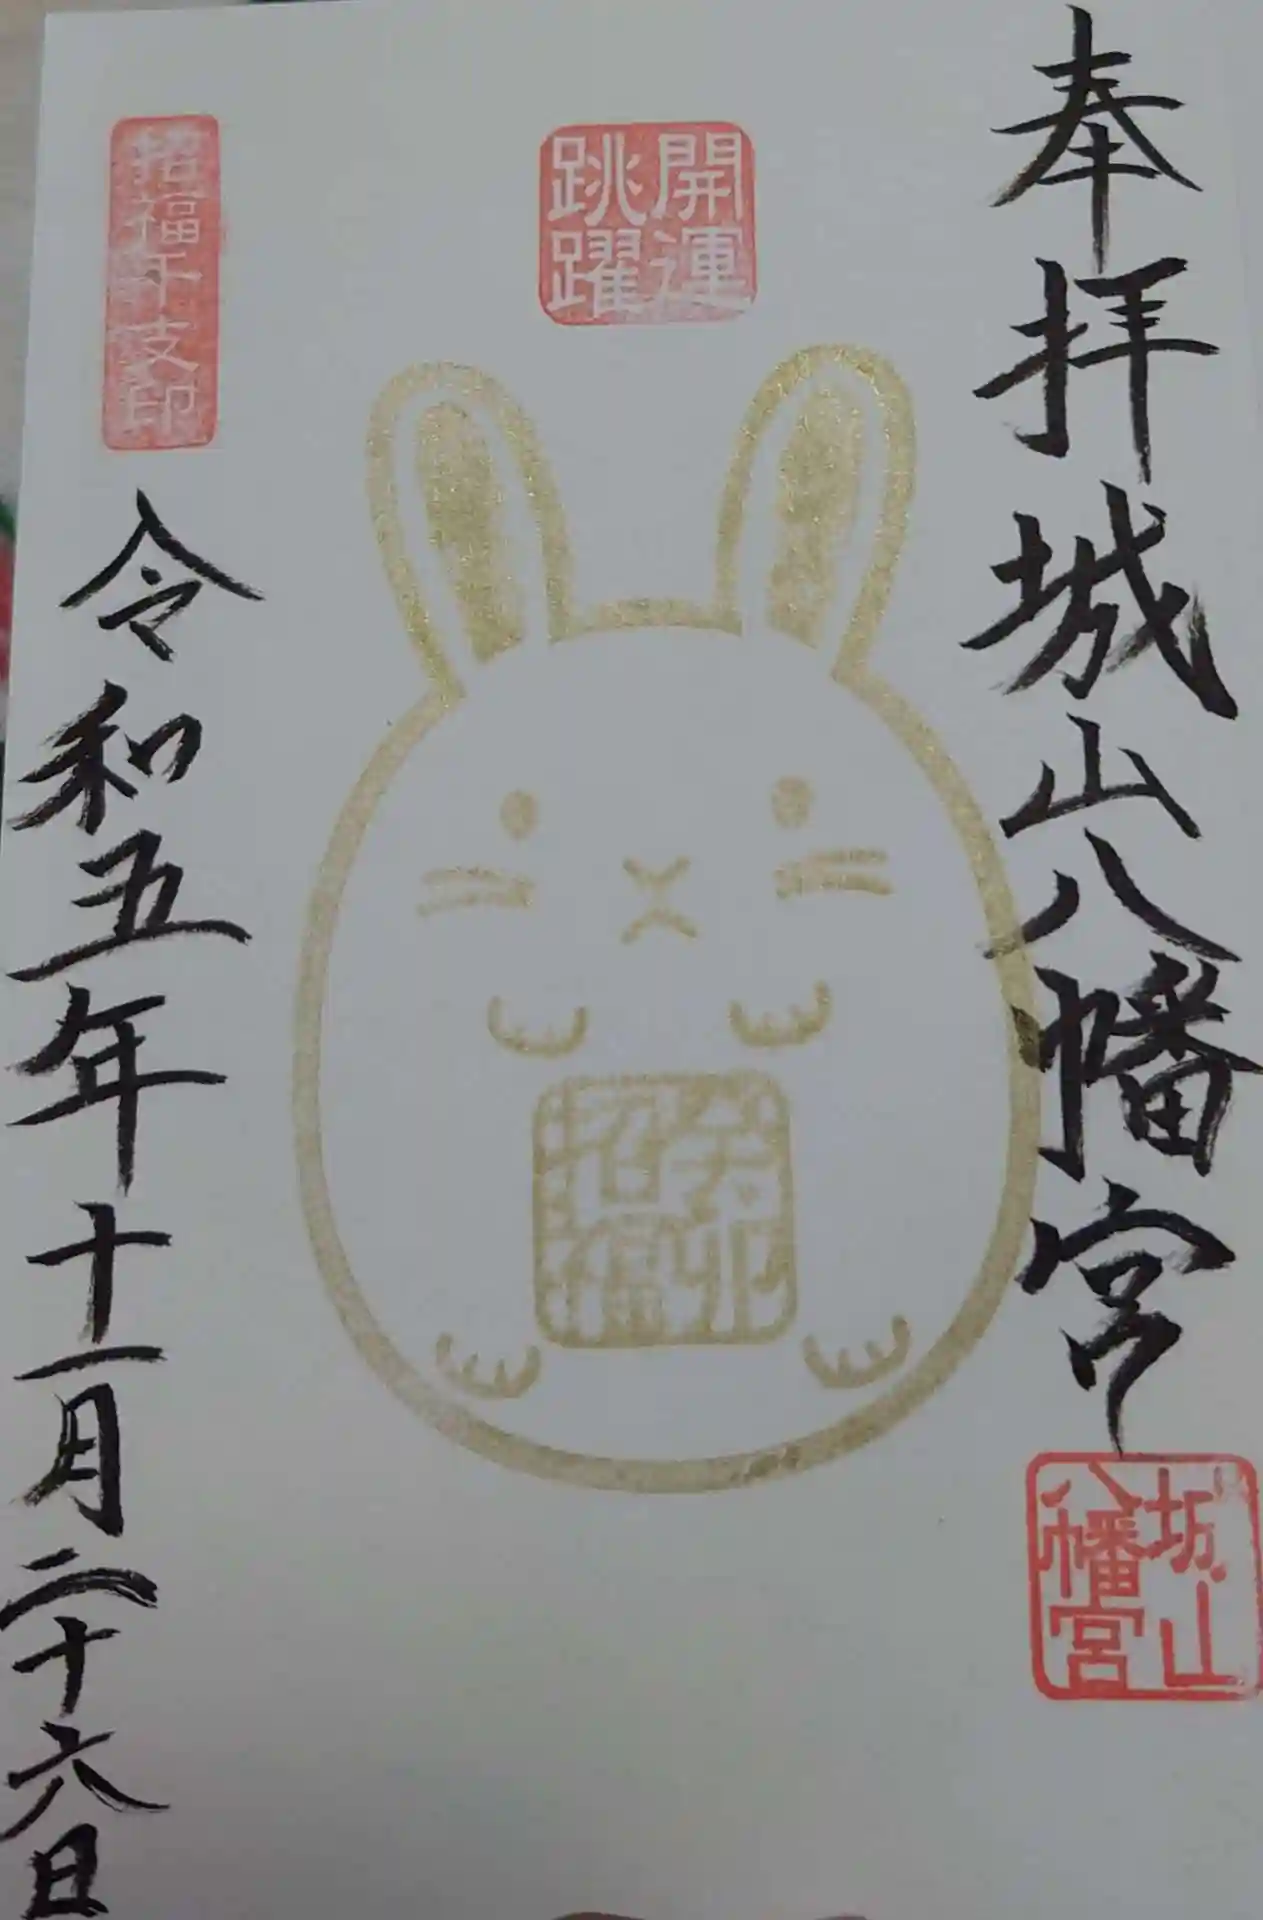 奉拝城山八幡宮
城山
八幡宮
開運
跳躍
癸卯
招福
招福干支印
令和五年十一月二十六日